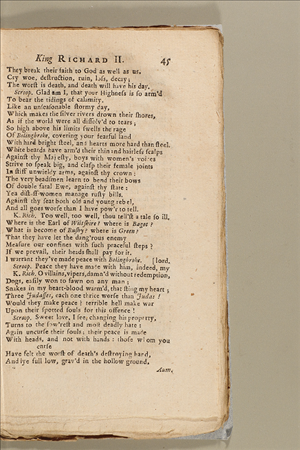 King RICHARD II. 45
They break their faith to God as well as us.
Cry woe, destruction, ruin, loss, decay;
The worst is death, and death will have his day.
Scroop. Glad am I, that your Highness is so arm'd
To bear the tidings of calamity.
Like an unseasonable stormy day,
Which makes the silver rivers drown their shores,
As if the world were all dissolv'd to tears;
So high above his limits swells the rage
Of Bolingbroke, covering your fearful land
With hard bright steel, and hearts more hard than steel.
White beards have arm'd their thin and hairless scalps
Against thy Majesty, boys with women's voices
Strive to speak big, and clasp their female joints
In stiff unwieldy arms, against thy crown:
The very beadsmen learn to bend their bows
Of double fatal Ewe, against thy state:
Yea distaff-women manage rusty bills.
Against thy seat both old and young rebel,
And all goes worse than I have pow'r to tell.
K. Rich. Too well, too well, thou tell'st a tale so ill.
Where is the Earl of Wiltshire? where is Bagot?
What is become of Bushy? where is Green?
That they have let the dang'rous enemy
Measure our confines with such peaceful steps?
If we prevail, their heads shall pay for it.
I warrant they've made peace with Bolingbroke. [lord.
Scroop. Peace they have made with him, indeed, my
K. Rich. O villains, vipers, damn'd without redemption,
Dogs, easily won to fawn on any man;
Snakes in my heart-blood warm'd, that sting my heart;
Three Judasses, each one thrice worse than Judas!
Would they make peace? terrible hell make war
Upon their spotted souls for this offence!
Scroop. Sweet love, I see, changing his property,
Turns to the sow'rest and most deadly hate:
Again uncurse their souls; their peace is made
With heads, and not with hands: those whom you
curse
Have felt the worst of death's destroying hand,
And lye full low, grav'd in the hollow ground.
Aum.